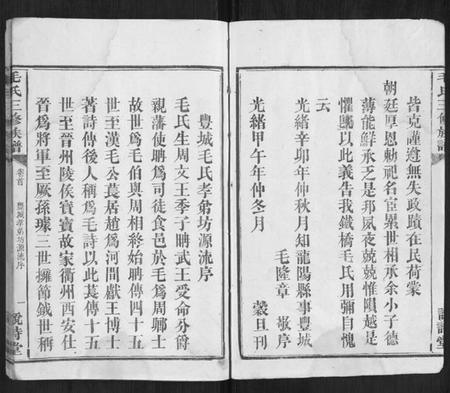 毛氏三修族譜
皆克謹遵無失政蹟在民荷蒙
朝廷厚恩勅祀名宦累世相承余小子德
薄能鮮承乏是邦夙夜兢兢惟隕越是
懼賜以此義告我鐵橋毛氏用彌自愧
云
光緒辛卯年仲秋月知龍陽縣事豐城
毛隆章 敬序
光緒甲午年仲冬月 穀旦刊
豐城毛氏孝弟坊源流序
毛氏生周文王季子聃武王受命分爵
親藩使聃爲司徒食邑於毛爲周卿士
故世爲毛伯與周相終始聃傳四十五
世至漢毛公萇居趙爲河間獻王博士
著詩傳後人稱爲毛詩以此萇傳十五
世至晉州陵侯寶寶故家衢州西安仕
晉爲將軍至厥孫璩三世擁節鉞世稱
毛氏三修族譜
卷首
豐城孝弟坊源流序
一
說詩堂